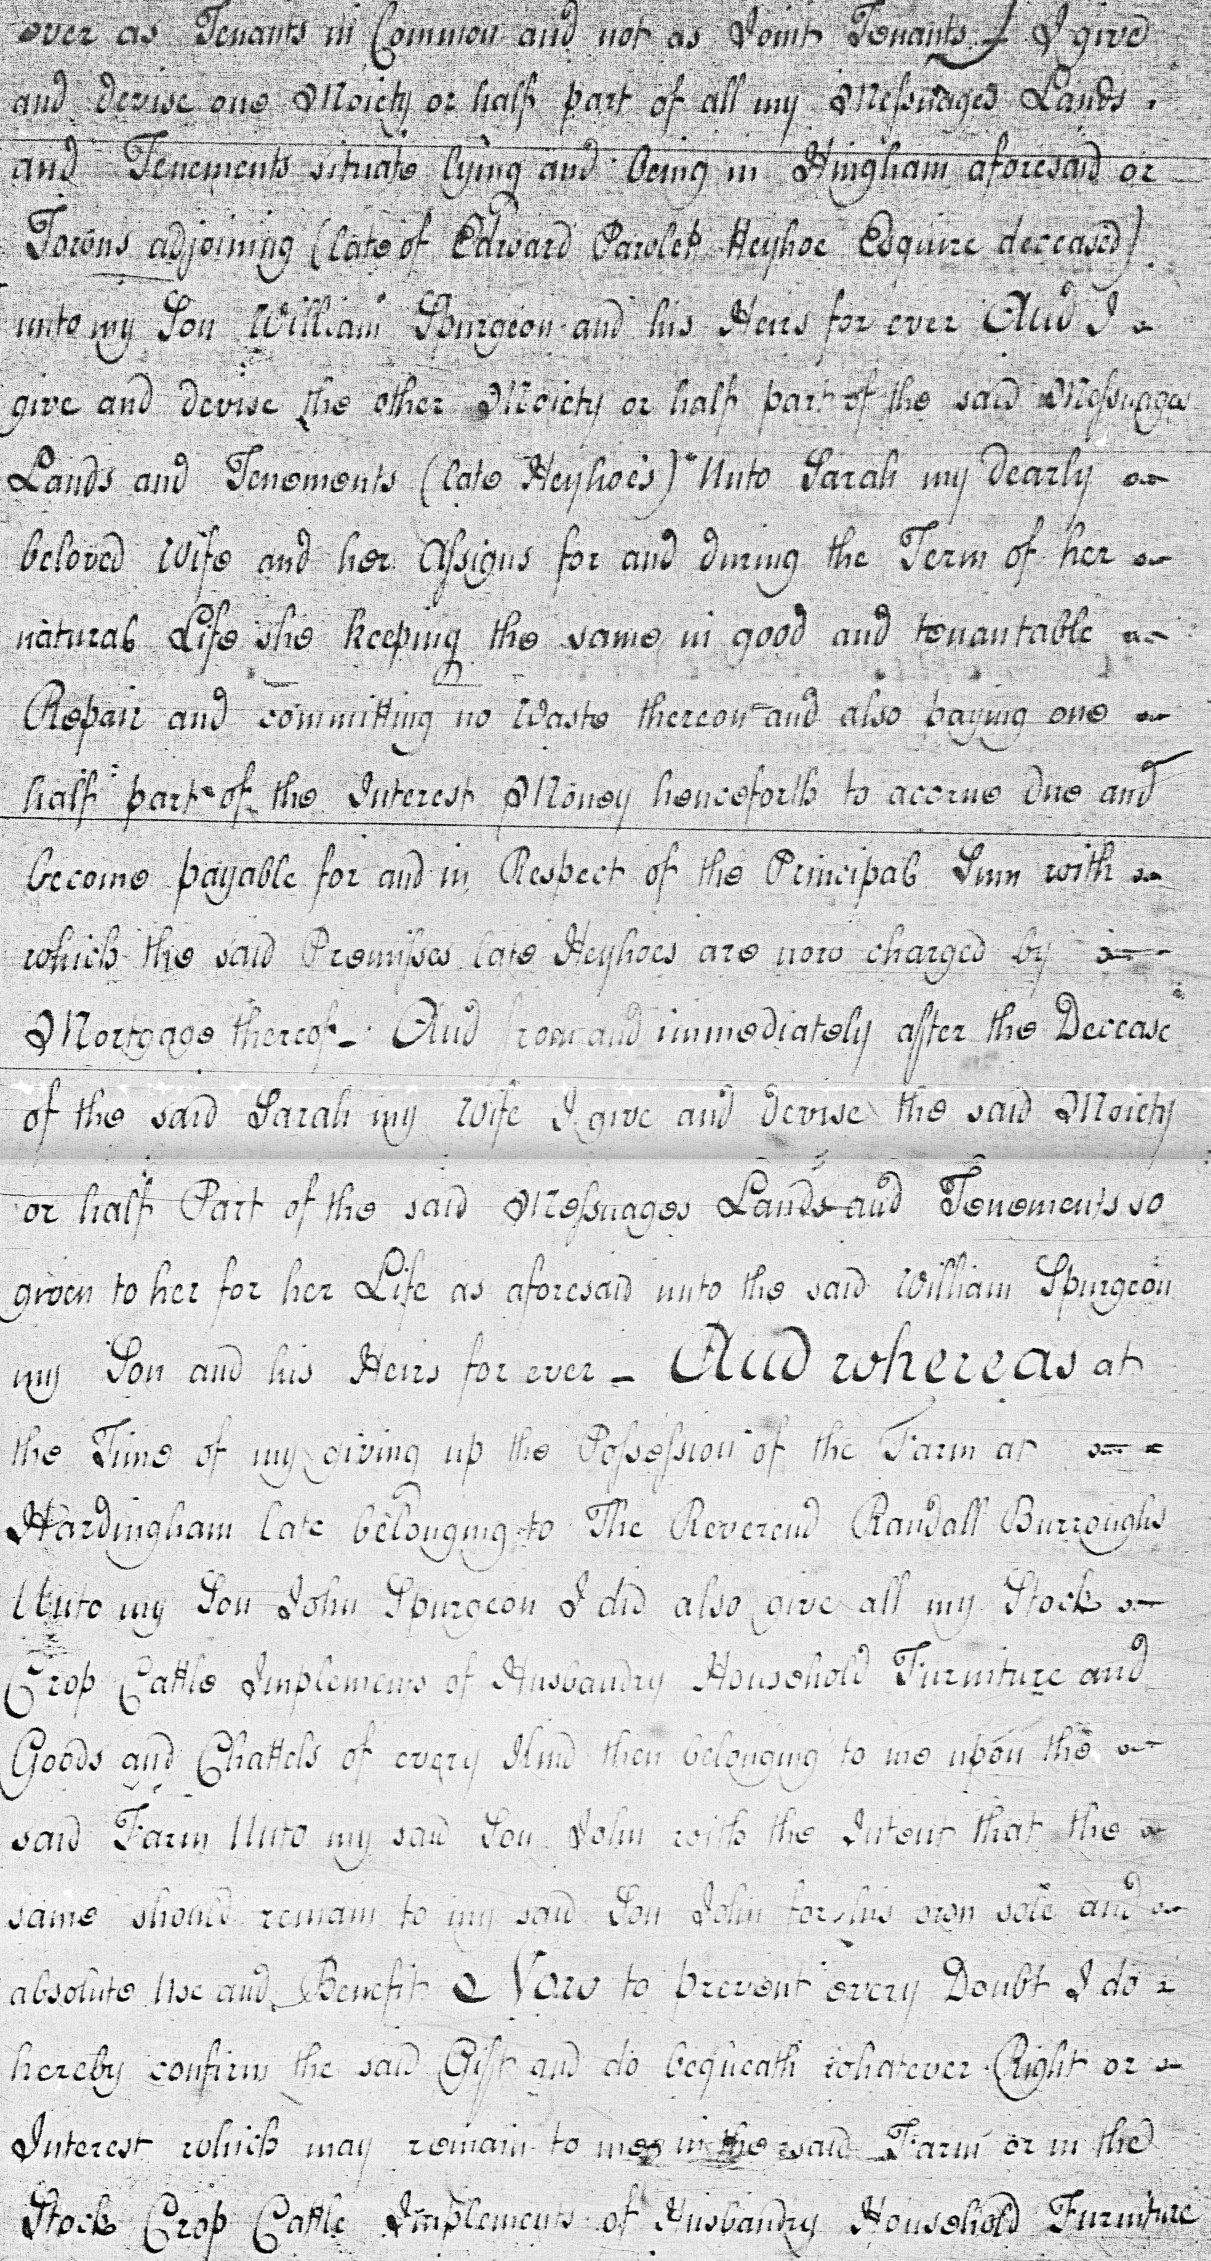 over as Tenants in Common and not as Joint Tenants I give
and devise one Moiety or half part of all my Messuages Lands
and Tenements situate lying and being in Hingham aforesaid or
Towns adjoining (late of Edward Heyhoe Esquire deceased)
unto my Son William Spurgeon and his Heirs for ever And I
give and devise the other Moiety or half part of the said Messuages
Lands and Tenements (late Heyhoe's) Unto Sarah my dearly
beloved Wife and her Assigns for and during the Term of her
natural Life she keeping the same in good and tenantable
Repair and committing no Waste thereon and also paying one
half part of the Interest Money henceforth to accrue due and
become payable for and in Respect of the Principal Sum with
which the said Premisses late Heyhoes are now charged by
Mortgage thereof - And from and immediately after the Decease
of the said Sarah my Wife I give and devise the said Moiety
or half Part of the said Messuages Lands and Tenements so
given to her for her Life as aforesaid unto the said William Spurgeon
my Son and his Heirs for ever - And whereas at
the Time of my giving up the Possession of the Farm at
Hardingham late belonging to The Reverend Randall Burroughs
Unto my Son John Spurgeon I did also give all my Stock
Crop Cattle Implements of Husbandry Household Furniture and
Goods and Chattels of every Kind then belonging to me upon the
said Farm Unto my said Son John with the Intent that the
same should remain to my said Son John for his own sole and
absolute Use and Benefit Now to prevent every Doubt I do
hereby confirm the said Gift and do bequeath whatever Right or
Interest which may remain to me in the said Farm or in the
Stock Crop Cattle Implements of Husbandry Household Furniture